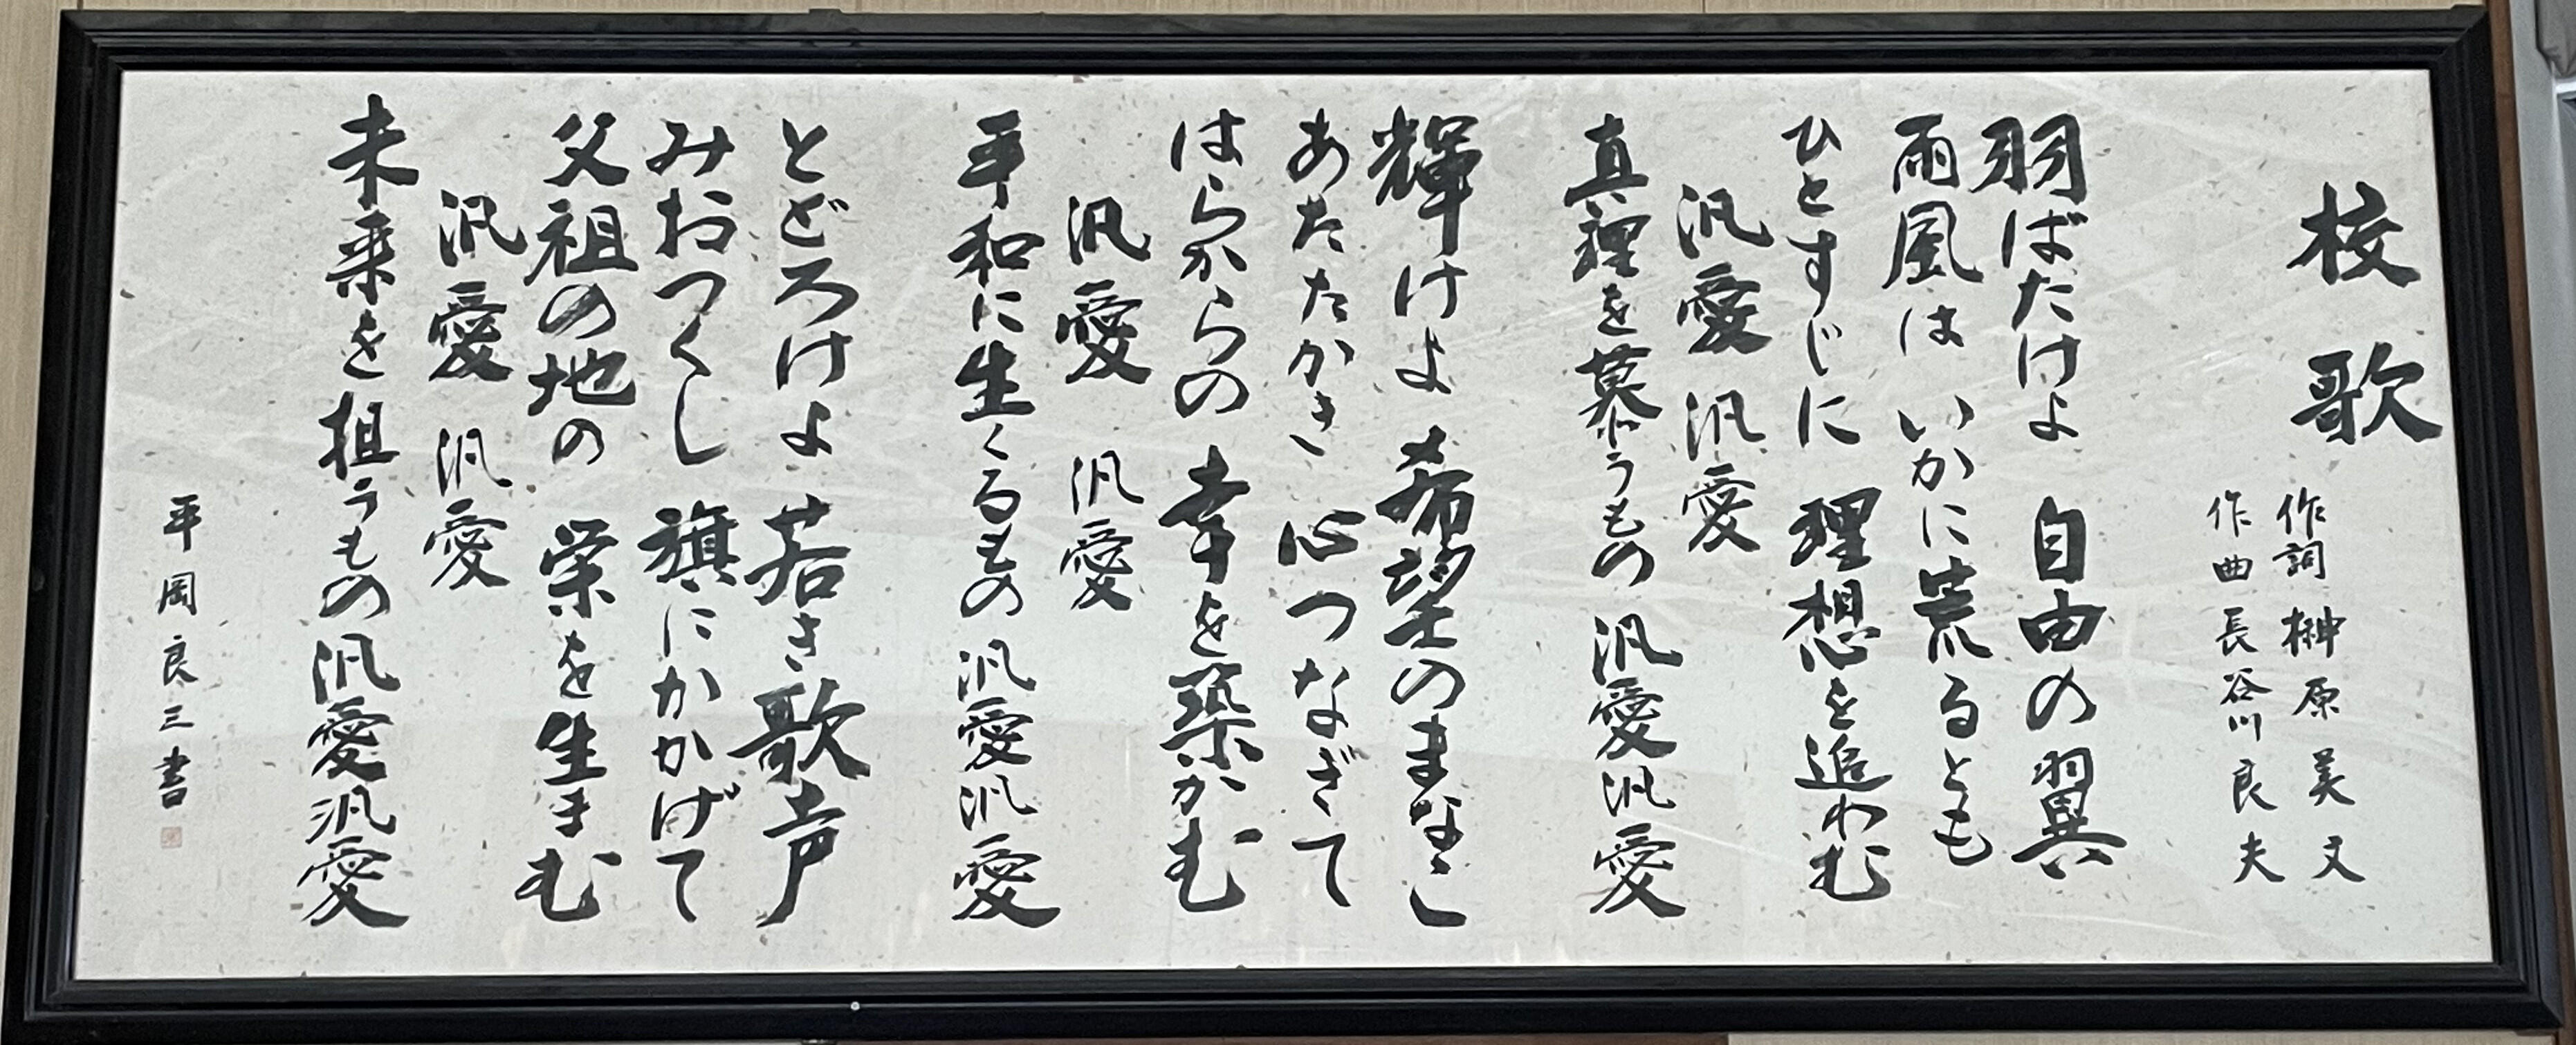 校歌
作詞 榊原美文
作曲 長谷川良夫
羽ばたけよ 自由の翼
雨風は いかに荒るとも
ひとすじに 理想を追わむ
汎愛 汎愛
真理を慕うもの 汎愛汎愛
輝けよ 希望のまなこ
あたたかき 心つなぎて
はらからの 幸を築かむ
汎愛 汎愛
平和に生くるもの 汎愛汎愛
とどろけよ 若き歌声
みおつくし 旗にかかげて
父祖の地の 栄を生まむ
汎愛 汎愛
未来を担うもの 汎愛汎愛
平岡良三書